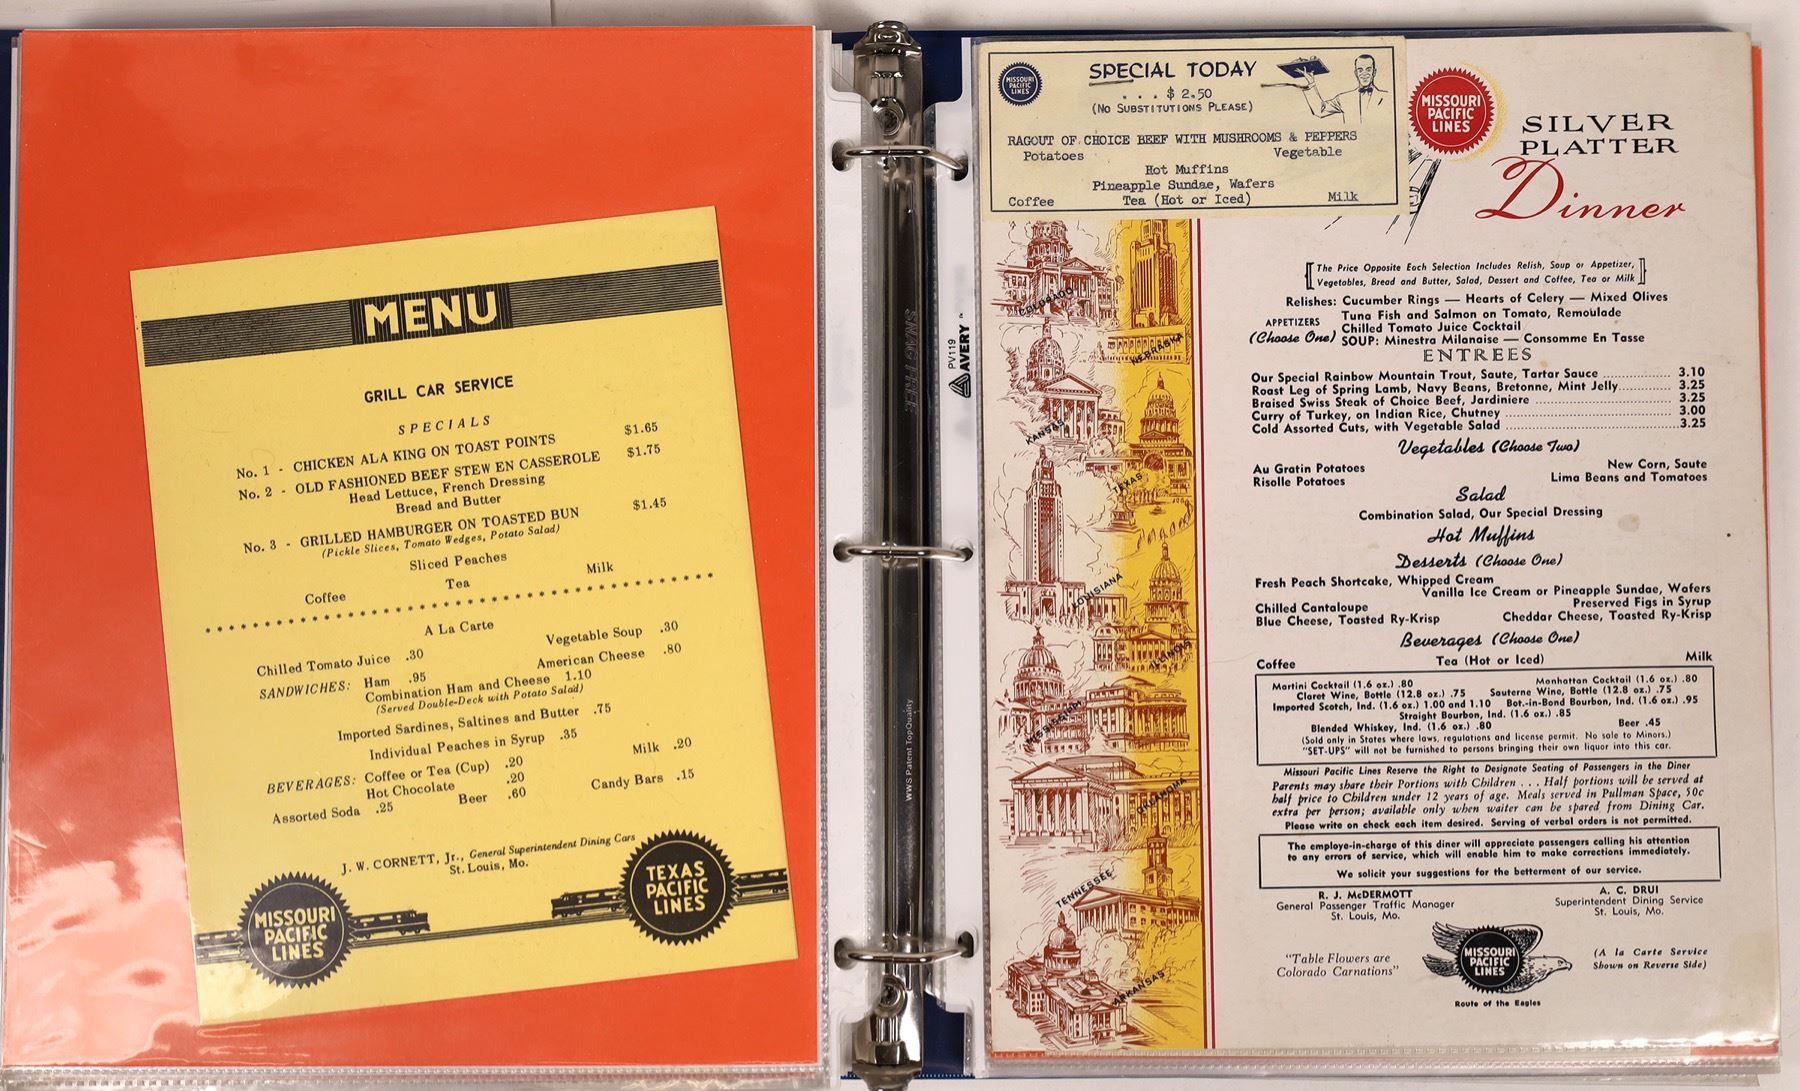 MENU
GRILL CAR SERVICE
SPECIALS
No. 1 - CHICKEN ALA KING ON TOAST POINTS $1.65
No. 2 - OLD FASHIONED BEEF STEW EN CASSEROLE $1.75
Head Lettuce, French Dressing
Bread and Butter
No. 3 - GRILLED HAMBURGER ON TOASTED BUN $1.45
(Pickle Slices, Tomato Wedges, Potato Salad)
Sliced Peaches
Coffee Tea Milk
A La Carte
Chilled Tomato Juice .30 Vegetable Soup .30
SANDWICHES: Ham .95 American Cheese .80
Combination Ham and Cheese 1.10
(Served Double-Deck with Potato Salad)
Imported Sardines, Saltines and Butter .75
Individual Peaches in Syrup .35
BEVERAGES: Coffee or Tea (Cup) .20 Milk .20
Hot Chocolate .20
Assorted Soda .25 Beer .60 Candy Bars .15
J. W. CORNETT, Jr., General Superintendent Dining Cars
St. Louis, Mo.
MISSOURI
PACIFIC
LINES
TEXAS
PACIFIC
LINES
SNAG FREE
WWS Patent TopQuality
PV119
AVERY
MISSOURI
PACIFIC
LINES
SPECIAL TODAY
. . . $ 2.50
(NO SUBSTITUTIONS PLEASE)
RAGOUT OF CHOICE BEEF WITH MUSHROOMS & PEPPERS
Potatoes Vegetable
Hot Muffins
Pineapple Sundae, Wafers
Coffee Tea (Hot or Iced) Milk
MISSOURI
PACIFIC
LINES
SILVER
PLATTER
Dinner
COLORADO
NEBRASKA
KANSAS
TEXAS
LOUISIANA
ILLINOIS
MISSISSIPPI
OKLAHOMA
TENNESSEE
ARKANSAS
[The Price Opposite Each Selection Includes Relish, Soup or Appetizer,
Vegetables, Bread and Butter, Salad, Dessert and Coffee, Tea or Milk]
Relishes: Cucumber Rings — Hearts of Celery — Mixed Olives
APPETIZERS Tuna Fish and Salmon on Tomato, Remoulade
Chilled Tomato Juice Cocktail
(Choose One) SOUP: Minestra Milanaise — Consomme En Tasse
ENTREES
Our Special Rainbow Mountain Trout, Saute, Tartar Sauce 3.10
Roast Leg of Spring Lamb, Navy Beans, Bretonne, Mint Jelly 3.25
Braised Swiss Steak of Choice Beef, Jardiniere 3.25
Curry of Turkey, on Indian Rice, Chutney 3.00
Cold Assorted Cuts, with Vegetable Salad 3.25
Vegetables (Choose Two)
Au Gratin Potatoes New Corn, Saute
Risolle Potatoes Lima Beans and Tomatoes
Salad
Combination Salad, Our Special Dressing
Hot Muffins
Desserts (Choose One)
Fresh Peach Shortcake, Whipped Cream
Vanilla Ice Cream or Pineapple Sundae, Wafers
Chilled Cantaloupe Preserved Figs in Syrup
Blue Cheese, Toasted Ry-Krisp Cheddar Cheese, Toasted Ry-Krisp
Beverages (Choose One)
Coffee Tea (Hot or Iced) Milk
Martini Cocktail (1.6 oz.) .80 Manhattan Cocktail (1.6 oz.) .80
Claret Wine, Bottle (12.8 oz.) .75 Sauterne Wine, Bottle (12.8 oz.) .75
Imported Scotch, Ind. (1.6 oz.) 1.00 and 1.10 Bot.-in-Bond Bourbon, Ind. (1.6 oz.) .95
Straight Bourbon, Ind. (1.6 oz.) .85
Blended Whiskey, Ind. (1.6 oz.) .80 Beer .45
(Sold only in States where laws, regulations and license permit. No sale to Minors.)
"SET-UPS" will not be furnished to persons bringing their own liquor into this car.
Missouri Pacific Lines Reserve the Right to Designate Seating of Passengers in the Diner
Parents may share their Portions with Children . . . Half portions will be served at
half price to Children under 12 years of age. Meals served in Pullman Space, 50c
extra per person; available only when waiter can be spared from Dining Car.
Please write on check each item desired. Serving of verbal orders is not permitted.
The employe-in-charge of this diner will appreciate passengers calling his attention
to any errors of service, which will enable him to make corrections immediately.
We solicit your suggestions for the betterment of our service.
R. J. McDERMOTT A. C. DRUI
General Passenger Traffic Manager Superintendent Dining Service
St. Louis, Mo. St. Louis, Mo.
"Table Flowers are
Colorado Carnations"
MISSOURI
PACIFIC
LINES
Route of the Eagles
(A la Carte Service
Shown on Reverse Side)